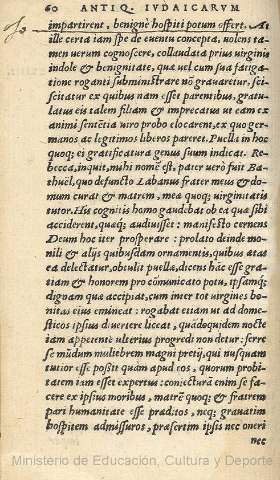 60 ANTIQ. IVDAICARVM
impartirent, benignè hospiti potum offert. At
ille certa iam spe de euentu concepta, uolens ta-
men uerum cognoscere, collaudata prius uirginis
indole & benignitate, quæ uel cum sua fatiga-
tione roganti subministrare nō grauaretur, sci-
scitatur ex quibus nam esset parentibus, gratu-
latus eis talem filiam & imprecatus ut eam ex
animi sentētia uiro probo elocarent, ex quo ger-
manos ac legitimos liberos pareret. Puella in hoc
quoq; ei gratificatura genus suum indicat. Re-
becca, inquit, mihi nomē est, pater uerò fuit Ba-
thuël, quo defuncto Labanus frater meus & do-
mum curat & matrem, meæ quoq; uirginitatis
tutor. His cognitis homo gaudebat ob ea quæ sibi
acciderent, quæq; audiuisset: manifestò cernens
Deum hoc iter prosperare: prolato deinde mo-
nili & alijs quibusdam ornamentis, quibus ætas
ea delectatur, obtulit puellæ, dicens hāc esse gratiā
am & honorem pro cōmunicato potu, ipsamq;
dignam quæ accipiat, cum inter tot uirgines bo-
nitas eius emineat: rogabat etiam ut ad dome-
sticos ipsius diuertere liceat, quādoquidem nocte
iam appetente ulterius progredi non detur: ferre
se mūdum muliebrem magni pretij, qui nusquam
tutior esse possit quàm apud eos, quorum probi-
tatem iam esset expertus: coniectura enim se fa-
cere ex ipsius moribus, matrē quoq; & fratrem
pari humanitate esse præditos, neq; grauatim
hospitem admissuros, præsertim ipsis nec oneri
nec
Ministerio de Educación, Cultura y Deporte